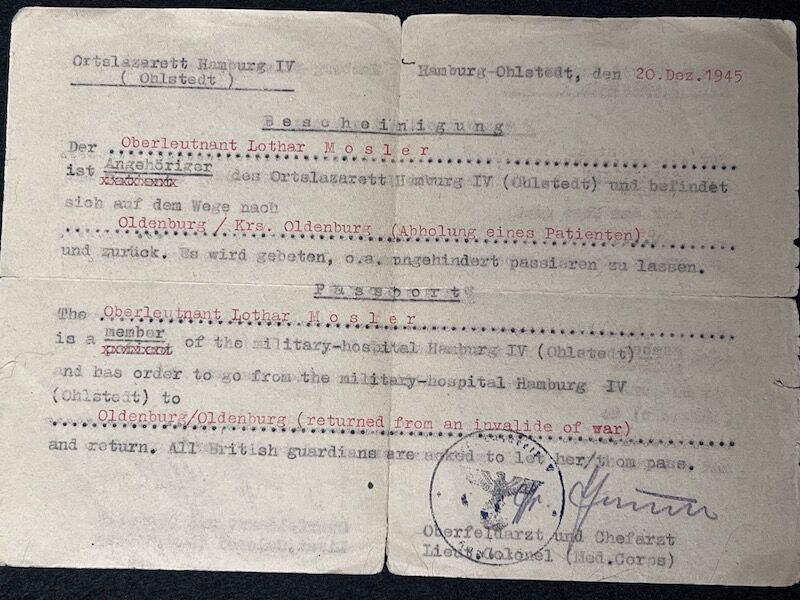 Ortslazarett Hamburg IV
( Ohlstedt )
Hamburg-Ohlstedt, den 20.Dez.1945
Bescheinigung
Der Oberleutnant Lothar Mosler
ist Angehöriger des Ortslazarett Hamburg IV (Ohlstedt) und befindet
sich auf dem Wege nach
Oldenburg / Krs. Oldenburg (Abholung eines Patienten)
und zurück. Es wird gebeten, o.a. ungehindert passieren zu lassen.
Passport
The Oberleutnant Lothar Mosler
is a member of the military-hospital Hamburg IV (Ohlstedt)
and has order to go from the military-hospital Hamburg IV
(Ohlstedt) to
Oldenburg/Oldenburg (returned from an invalide of war)
and return. All British guardians are asked to let her/thom pass.
Oberfeldarzt und Chefarzt
Lieut.Colonel (Med.Corps)